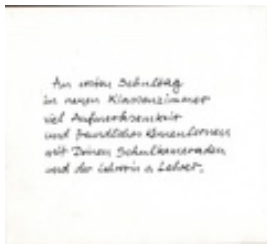 Am ersten Schultag
im neuen Klassenzimmer
viel Aufmerksamkeit
und freundliches Kennenlernen
mit Deinen Schulkameraden
und der Lehrerin o. Lehrer.